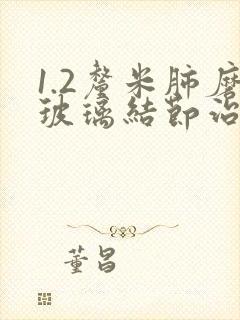 1.2釐米肺磨
玻璃結節治
董昌